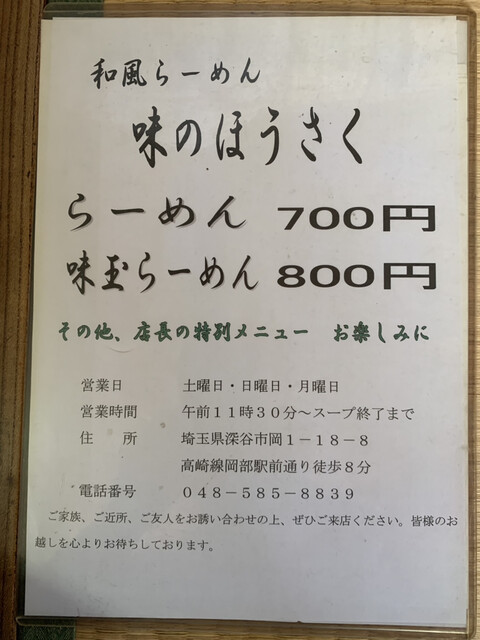 和風らーめん
味のほうさく
らーめん 700円
味玉らーめん 800円
その他、店長の特別メニュー お楽しみに
営業日 土曜日・日曜日・月曜日
営業時間 午前11時30分～スープ終了まで
住 所 埼玉県深谷市岡1－18－8
高崎線岡部駅前通り徒歩8分
電話番号 048－585－8839
ご家族、ご近所、ご友人をお誘い合わせの上、ぜひご来店ください。皆様のお
越しを心よりお待ちしております。